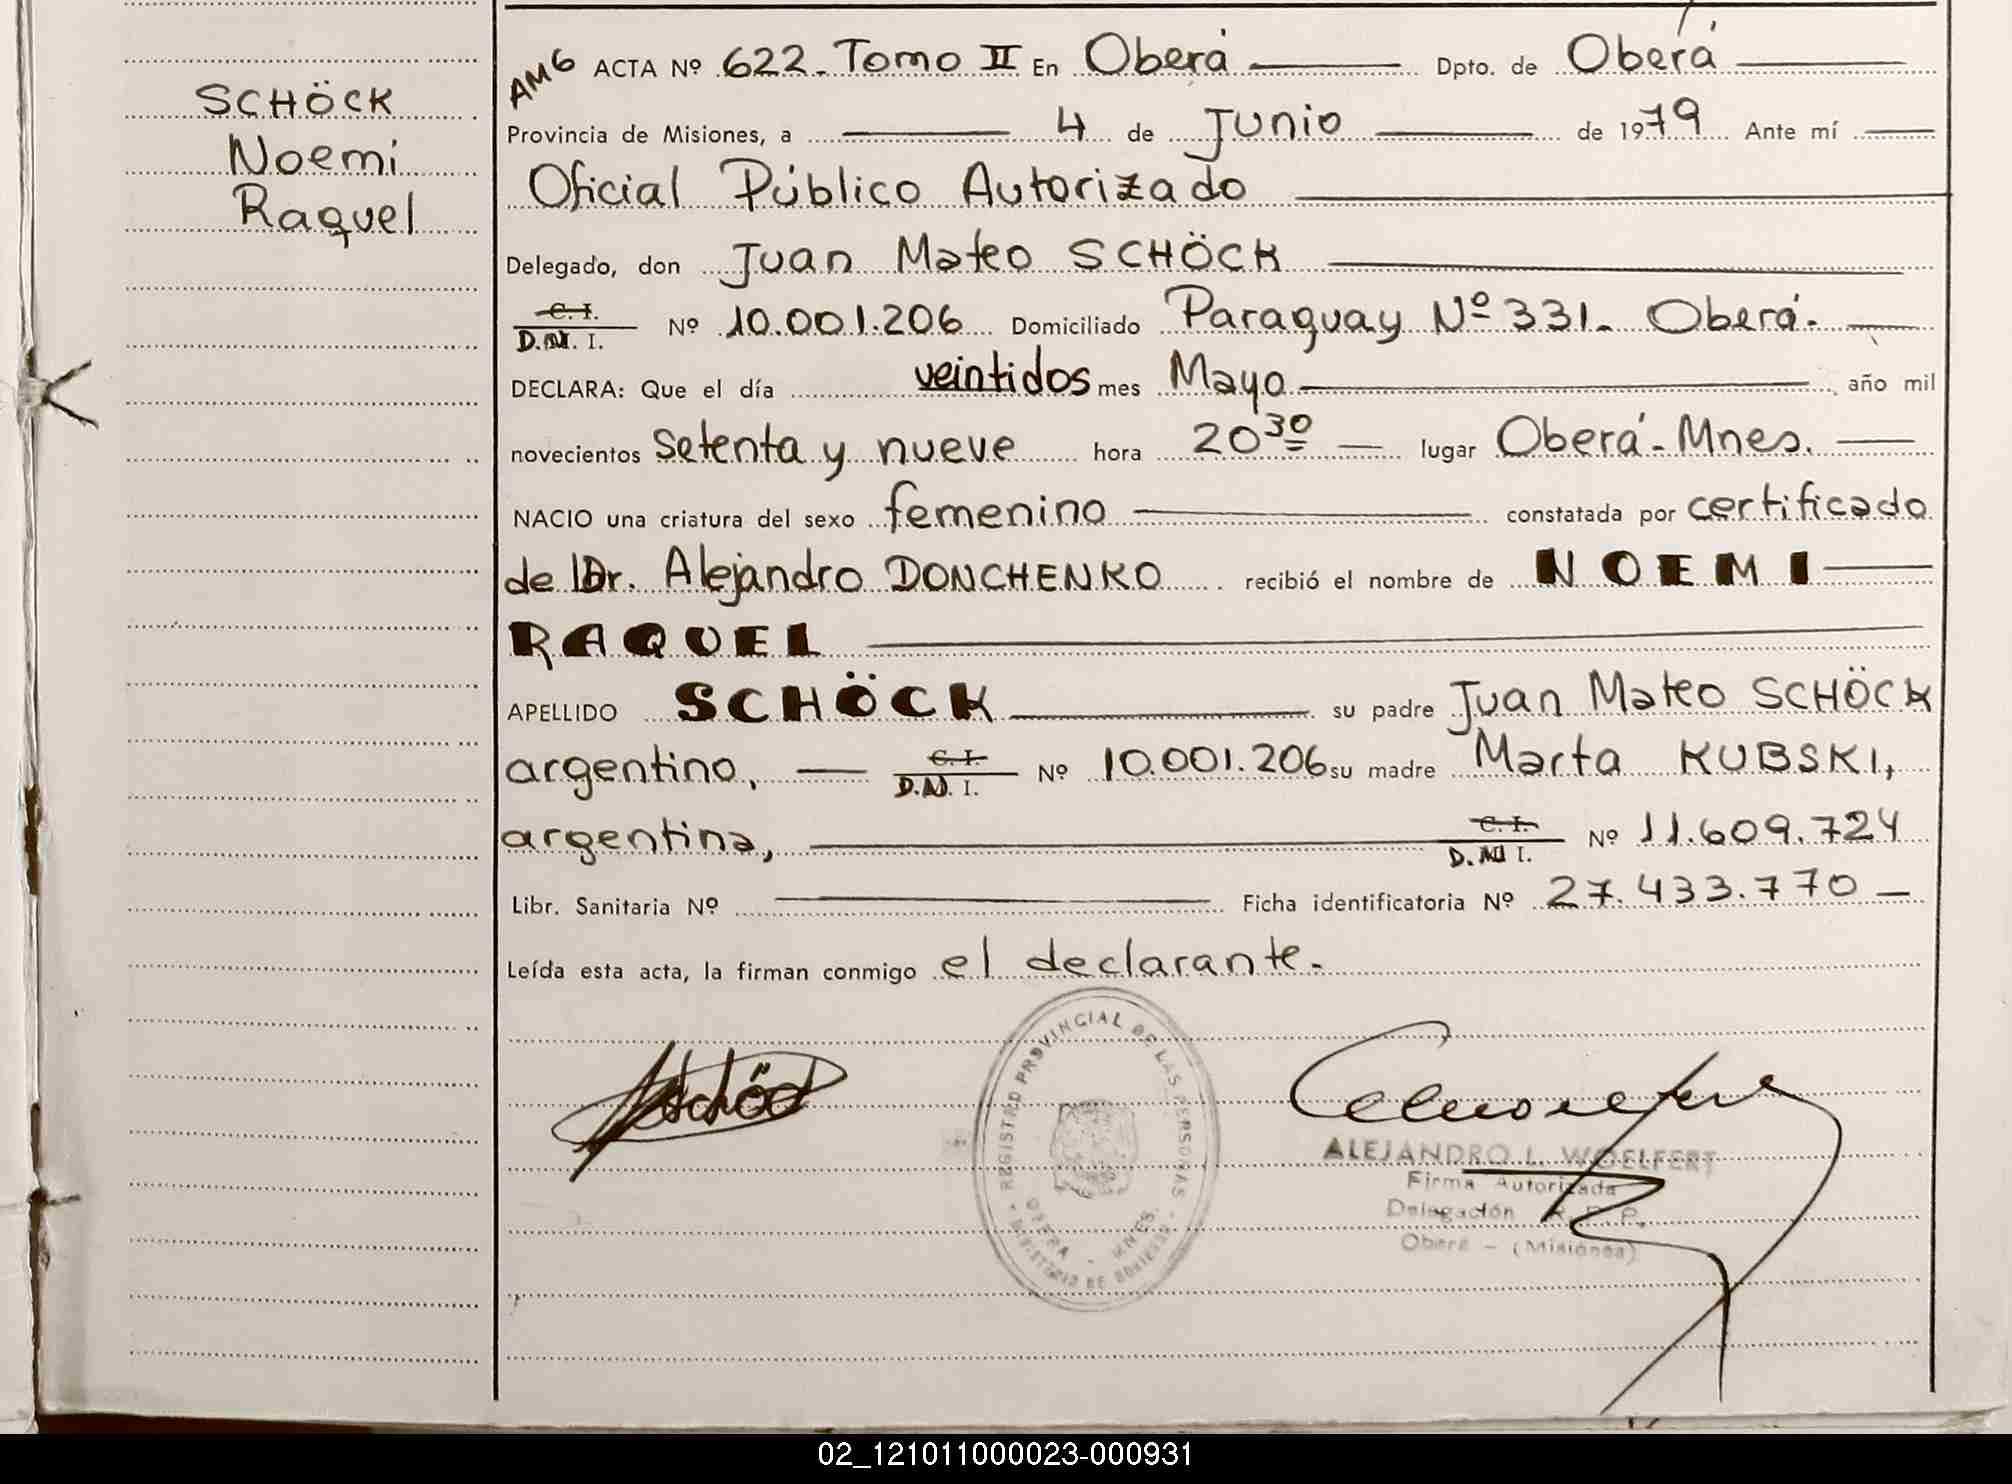 SCHÖCK
Noemi
Raquel
AMG ACTA Nº 622. Tomo II En Oberá Dpto. de Oberá
Provincia de Misiones, a 4 de Junio de 1979 Ante mí
Oficial Público Autorizado
Delegado, don Juan Mateo SCHÖCK
C. I.
D.N.I. Nº 10.001.206 Domiciliado Paraguay Nº 331. Oberá.
DECLARA: Que el día veintidos mes Mayo año mil
novecientos setenta y nueve hora 20 30 lugar Oberá-Mnes.
NACIO una criatura del sexo femenino constatada por certificado
del Dr. Alejandro DONCHENKO recibió el nombre de NOEMI
RAQUEL
APELLIDO SCHÖCK su padre Juan Mateo SCHÖCK
argentino, C. I. D.N.I. Nº 10.001.206 su madre Marta KUBSKI,
argentina, C. I. D.N.I. Nº 11.609.724
Libr. Sanitaria Nº Ficha identificatoria Nº 27.433.770
Leída esta acta, la firman conmigo el declarante.
REGISTRO PROVINCIAL DE LAS PERSONAS
OBERA - MNES.
MINISTERIO DE GOBIERNO
ALEJANDRO L. WOELFERT
Firma Autorizada
Delegación R. P. P.
Oberá - (Misiones)
02_121011000023-000931